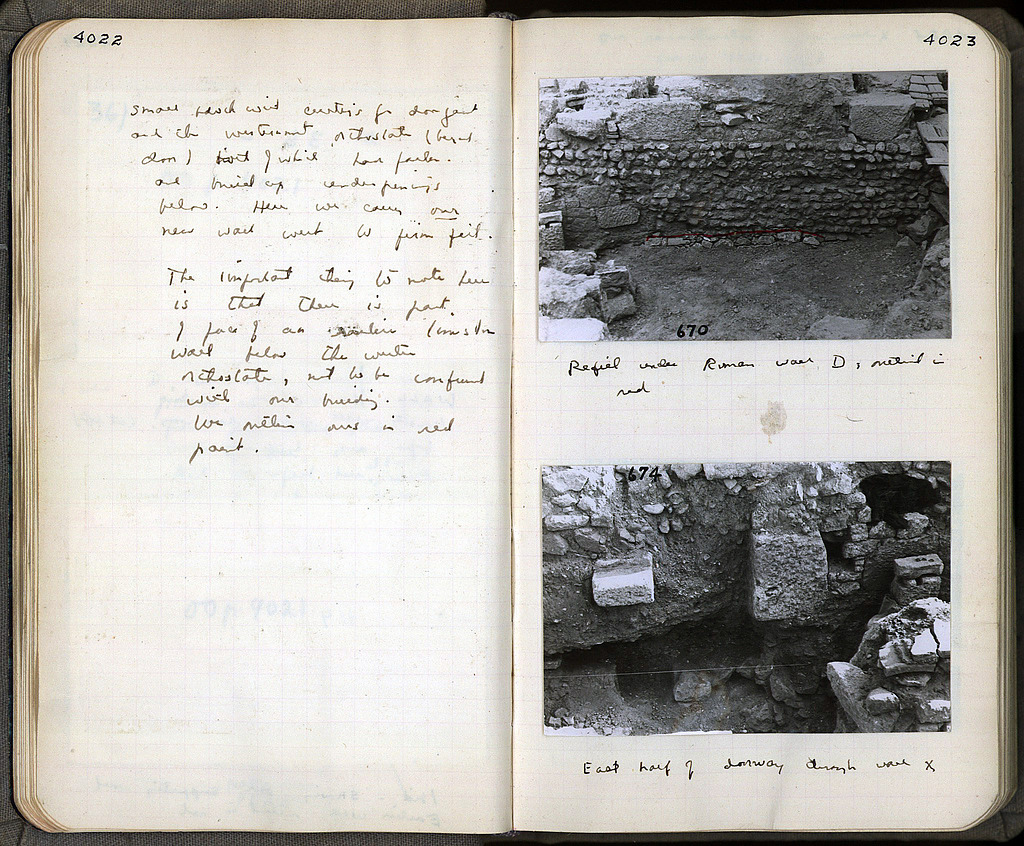 4022
small
and the westernmost orthostate (
door) which have fallen.
and buried up underpinnings
below. Here we carry our
new wall west to firm feet.
The important thing to note here
is that there is part
of face of an earlier limestone
wall below the western
orthostate, not to be confused
with our building.
We outline ours in red
paint.
4023
670
Refill under Roman wall D; outlined in
red
674
East half of doorway through wall X